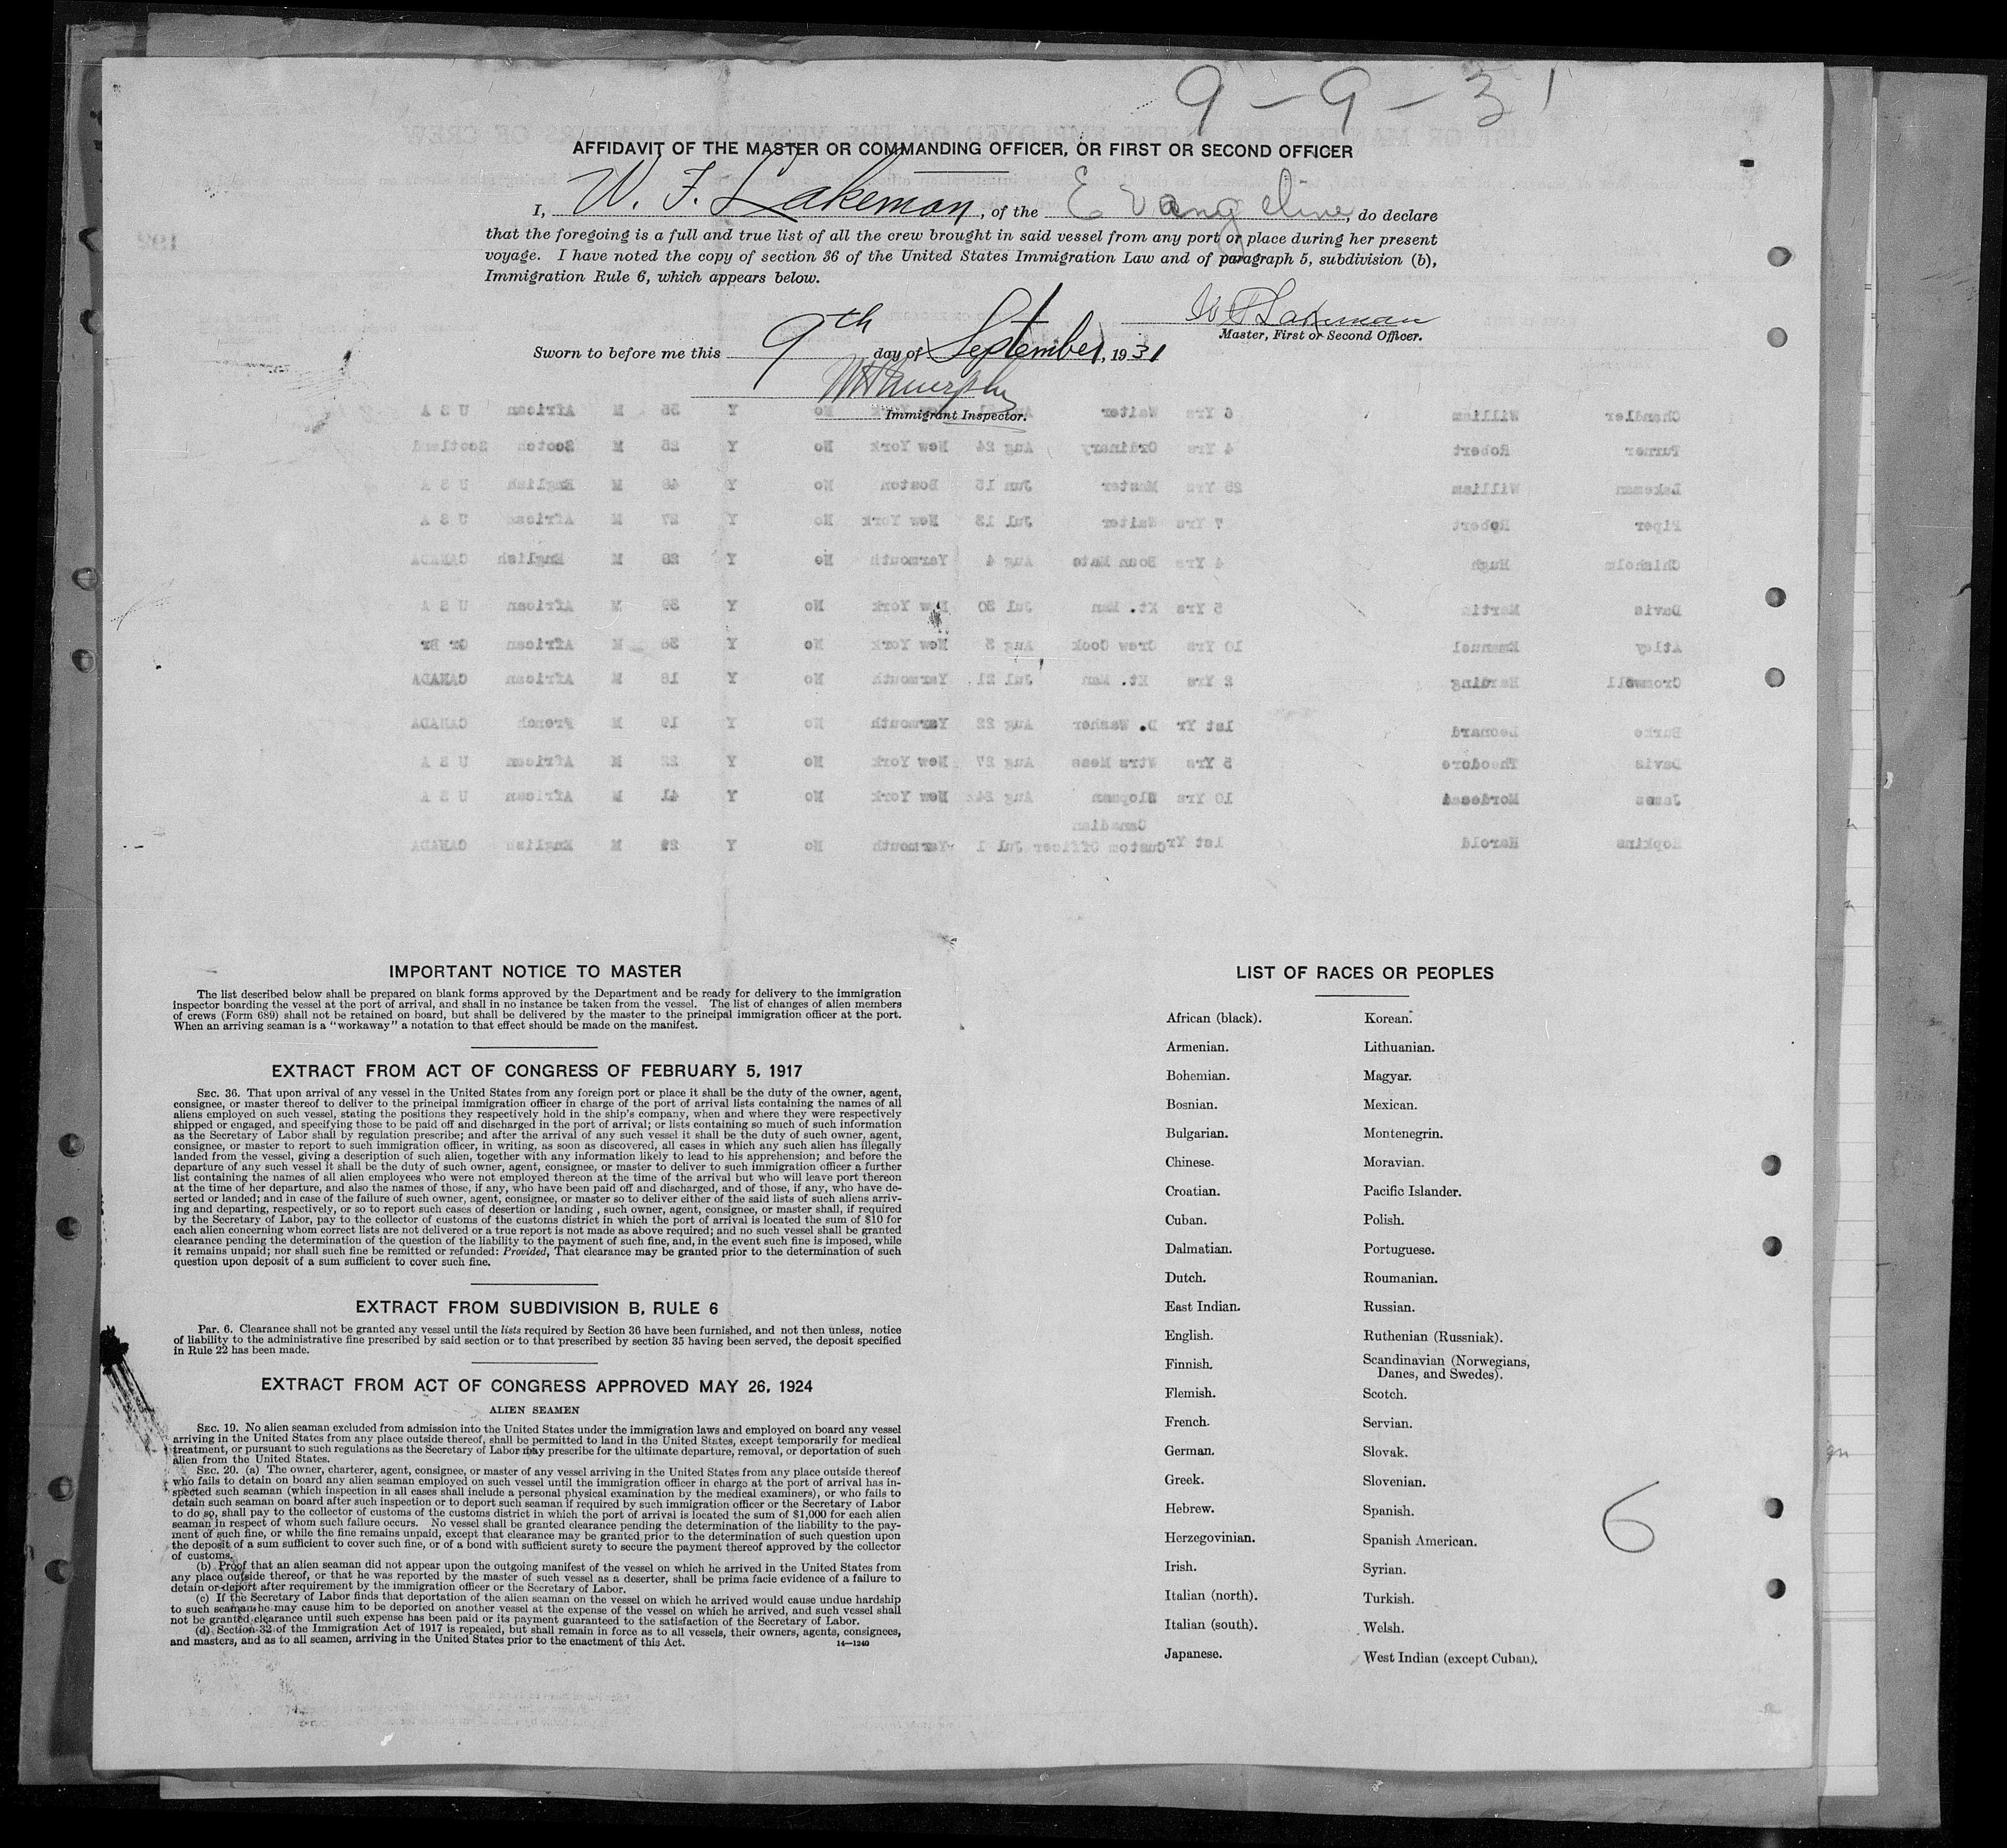 9 - 9 - 31
AFFIDAVIT OF THE MASTER OR COMMANDING OFFICER, OR FIRST OR SECOND OFFICER
I, W. F. Lakeman, of the Evangeline, do declare
that the foregoing is a full and true list of all the crew brought in said vessel from any port or place during her present
voyage. I have noted the copy of section 36 of the United States Immigration Law and of paragraph 5, subdivision (b),
Immigration Rule 6, which appears below.
W F Lakeman
Master, First or Second Officer.
Sworn to before me this 9th day of September, 1931
Immigrant Inspector.
Chandler William 6 Yrs Waiter New York No Y 35 M African U S A
Turner Robert 4 Yrs Ordinary Aug 24 New York No Y 25 M Scotch Scotland
Lakeman William 28 Yrs Master Jun 15 Boston No Y 49 M English U S A
Piper Robert 7 Yrs Waiter Jul 13 New York No Y 27 M African U S A
Chisholm Hugh 4 Yrs Bosn Mate Aug 4 Yarmouth No Y 28 M English CANADA
Davis Martin 5 Yrs Kt. Man Jul 30 New York No Y 39 M African U S A
Atley Emanuel 10 Yrs Crew Cook Aug 3 New York No Y 36 M African Gr Br
Cromwell Harding 2 Yrs Kt. Man Jul 21 Yarmouth No Y 18 M African CANADA
Burke Leonard 1st Yr D. Washer Aug 22 Yarmouth No Y 19 M French CANADA
Davis Theodore 5 Yrs Wtrs Mess Aug 27 New York No Y 22 M African U S A
James 10 Yrs Slopman Aug 24 New York No Y 41 M African U S A
Canadian
Hopkins Harold 1st Yr Custom Officer Jul 1 Yarmouth No Y 29 M English CANADA
IMPORTANT NOTICE TO MASTER
The list described below shall be prepared on blank forms approved by the Department and be ready for delivery to the immigration
inspector boarding the vessel at the port of arrival, and shall in no instance be taken from the vessel. The list of changes of alien members
of crews (Form 689) shall not be retained on board, but shall be delivered by the master to the principal immigration officer at the port.
When an arriving seaman is a "workaway" a notation to that effect should be made on the manifest.
EXTRACT FROM ACT OF CONGRESS OF FEBRUARY 5, 1917
SEC. 36. That upon arrival of any vessel in the United States from any foreign port or place it shall be the duty of the owner, agent,
consignee, or master thereof to deliver to the principal immigration officer in charge of the port of arrival lists containing the names of all
aliens employed on such vessel, stating the positions they respectively hold in the ship's company, when and where they were respectively
shipped or engaged, and specifying those to be paid off and discharged in the port of arrival; or lists containing so much of such information
as the Secretary of Labor shall by regulation prescribe; and after the arrival of any such vessel it shall be the duty of such owner, agent,
consignee, or master to report to such immigration officer, in writing, as soon as discovered, all cases in which any such alien has illegally
landed from the vessel, giving a description of such alien, together with any information likely to lead to his apprehension; and before the
departure of any such vessel it shall be the duty of such owner, agent, consignee, or master to deliver to such immigration officer a further
list containing the names of all alien employees who were not employed thereon at the time of the arrival but who will leave port thereon
at the time of her departure, and also the names of those, if any, who have been paid off and discharged, and of those, if any, who have de-
serted or landed; and in case of the failure of such owner, agent, consignee, or master so to deliver either of the said lists of such aliens arriv-
ing and departing, respectively, or so to report such cases of desertion or landing , such owner, agent, consignee, or master shall, if required
by the Secretary of Labor, pay to the collector of customs of the customs district in which the port of arrival is located the sum of $10 for
each alien concerning whom correct lists are not delivered or a true report is not made as above required; and no such vessel shall be granted
clearance pending the determination of the question of the liability to the payment of such fine, and, in the event such fine is imposed, while
it remains unpaid; nor shall such fine be remitted or refunded: Provided, That clearance may be granted prior to the determination of such
question upon deposit of a sum sufficient to cover such fine.
EXTRACT FROM SUBDIVISION B, RULE 6
Par. 6. Clearance shall not be granted any vessel until the lists required by Section 36 have been furnished, and not then unless, notice
of liability to the administrative fine prescribed by said section or to that prescribed by section 35 having been served, the deposit specified
in Rule 22 has been made.
EXTRACT FROM ACT OF CONGRESS APPROVED MAY 26, 1924
ALIEN SEAMEN
SEC. 19. No alien seaman excluded from admission into the United States under the immigration laws and employed on board any vessel
arriving in the United States from any place outside thereof, shall be permitted to land in the United States, except temporarily for medical
treatment, or pursuant to such regulations as the Secretary of Labor may prescribe for the ultimate departure, removal, or deportation of such
alien from the United States.
SEC. 20. (a) The owner, charterer, agent, consignee, or master of any vessel arriving in the United States from any place outside thereof
who fails to detain on board any alien seaman employed on such vessel until the immigration officer in charge at the port of arrival has in-
spected such seaman (which inspection in all cases shall include a personal physical examination by the medical examiners), or who fails to
detain such seaman on board after such inspection or to deport such seaman if required by such immigration officer or the Secretary of Labor
to do so, shall pay to the collector of customs of the customs district in which the port of arrival is located the sum of $1,000 for each alien
seaman in respect of whom such failure occurs. No vessel shall be granted clearance pending the determination of the liability to the pay-
ment of such fine, or while the fine remains unpaid, except that clearance may be granted prior to the determination of such question upon
the deposit of a sum sufficient to cover such fine, or of a bond with sufficient surety to secure the payment thereof approved by the collector
of customs.
(b) Proof that an alien seaman did not appear upon the outgoing manifest of the vessel on which he arrived in the United States from
any place outside thereof, or that he was reported by the master of such vessel as a deserter, shall be prima facie evidence of a failure to
detain or deport after requirement by the immigration officer or the Secretary of Labor.
(c) If the Secretary of Labor finds that deportation of the alien seaman on the vessel on which he arrived would cause undue hardship
to such seaman he may cause him to be deported on another vessel at the expense of the vessel on which he arrived, and such vessel shall
not be granted clearance until such expense has been paid or its payment guaranteed to the satisfaction of the Secretary of Labor.
(d) Section 32 of the Immigration Act of 1917 is repealed, but shall remain in force as to all vessels, their owners, agents, consignees,
and masters, and as to all seamen, arriving in the United States prior to the enactment of this Act.
14—1240
LIST OF RACES OR PEOPLES
African (black). Korean.
Armenian. Lithuanian.
Bohemian. Magyar.
Bosnian. Mexican.
Bulgarian. Montenegrin.
Chinese. Moravian.
Croatian. Pacific Islander.
Cuban. Polish.
Dalmatian. Portuguese.
Dutch. Roumanian.
East Indian. Russian.
English. Ruthenian (Russniak).
Finnish. Scandinavian (Norwegians,
Danes, and Swedes).
Flemish. Scotch.
French. Servian.
German. Slovak.
Greek. Slovenian.
Hebrew. Spanish.
Herzegovinian. Spanish American.
Irish. Syrian.
Italian (north). Turkish.
Italian (south). Welsh.
Japanese. West Indian (except Cuban).
6